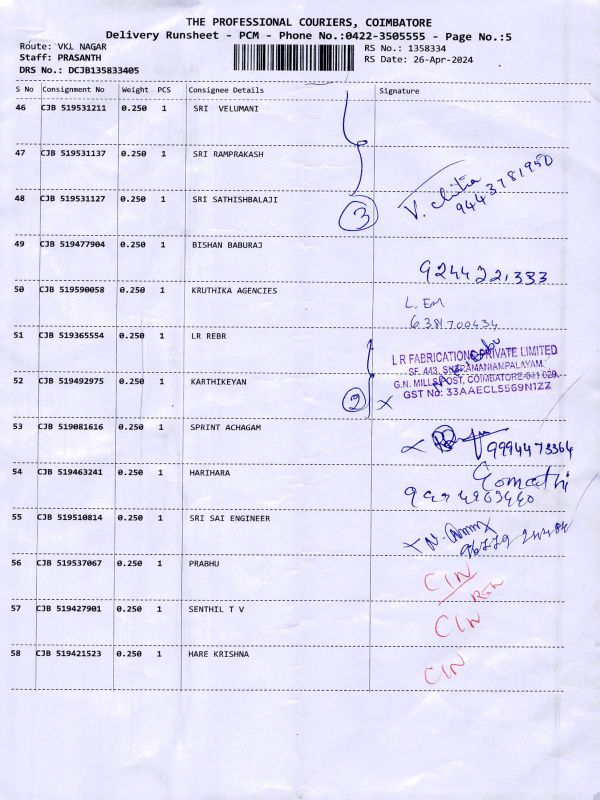 THE PROFESSIONAL COURIERS, COIMBATORE
Delivery Runsheet - PCM - Phone No.:0422-3505555 - Page No.:5
Route: VKL NAGAR RS No.: 1358334
Staff: PRASANTH RS Date: 26-Apr-2024
DRS No.: DCJB135833405
S No Consignment No Weight PCS Consignee Details Signature
46 CJB 519531211 0.250 1 SRI VELUMANI
47 CJB 519531137 0.250 1 SRI RAMPRAKASH
V. Chitra
9443781950
48 CJB 519531127 0.250 1 SRI SATHISHBALAJI
3
49 CJB 519477904 0.250 1 BISHAN BABURAJ
9244221333
50 CJB 519590058 0.250 1 KRUTHIKA AGENCIES
L. Em
6381700434
51 CJB 519365554 0.250 1 LR REBR
L R FABRICATIONS PRIVATE LIMITED
SF. 443, SUBRAMANIAMPALAYAM,
G.N. MILLS POST, COIMBATORE-641 029.
GST No: 33AAECL5569N1ZZ
52 CJB 519492975 0.250 1 KARTHIKEYAN
2
53 CJB 519081616 0.250 1 SPRINT ACHAGAM
9994473364
54 CJB 519463241 0.250 1 HARIHARA
Gomathi
55 CJB 519510814 0.250 1 SRI SAI ENGINEER
56 CJB 519537067 0.250 1 PRABHU
CIN
57 CJB 519427901 0.250 1 SENTHIL T V
CIN
58 CJB 519421523 0.250 1 HARE KRISHNA
CIN